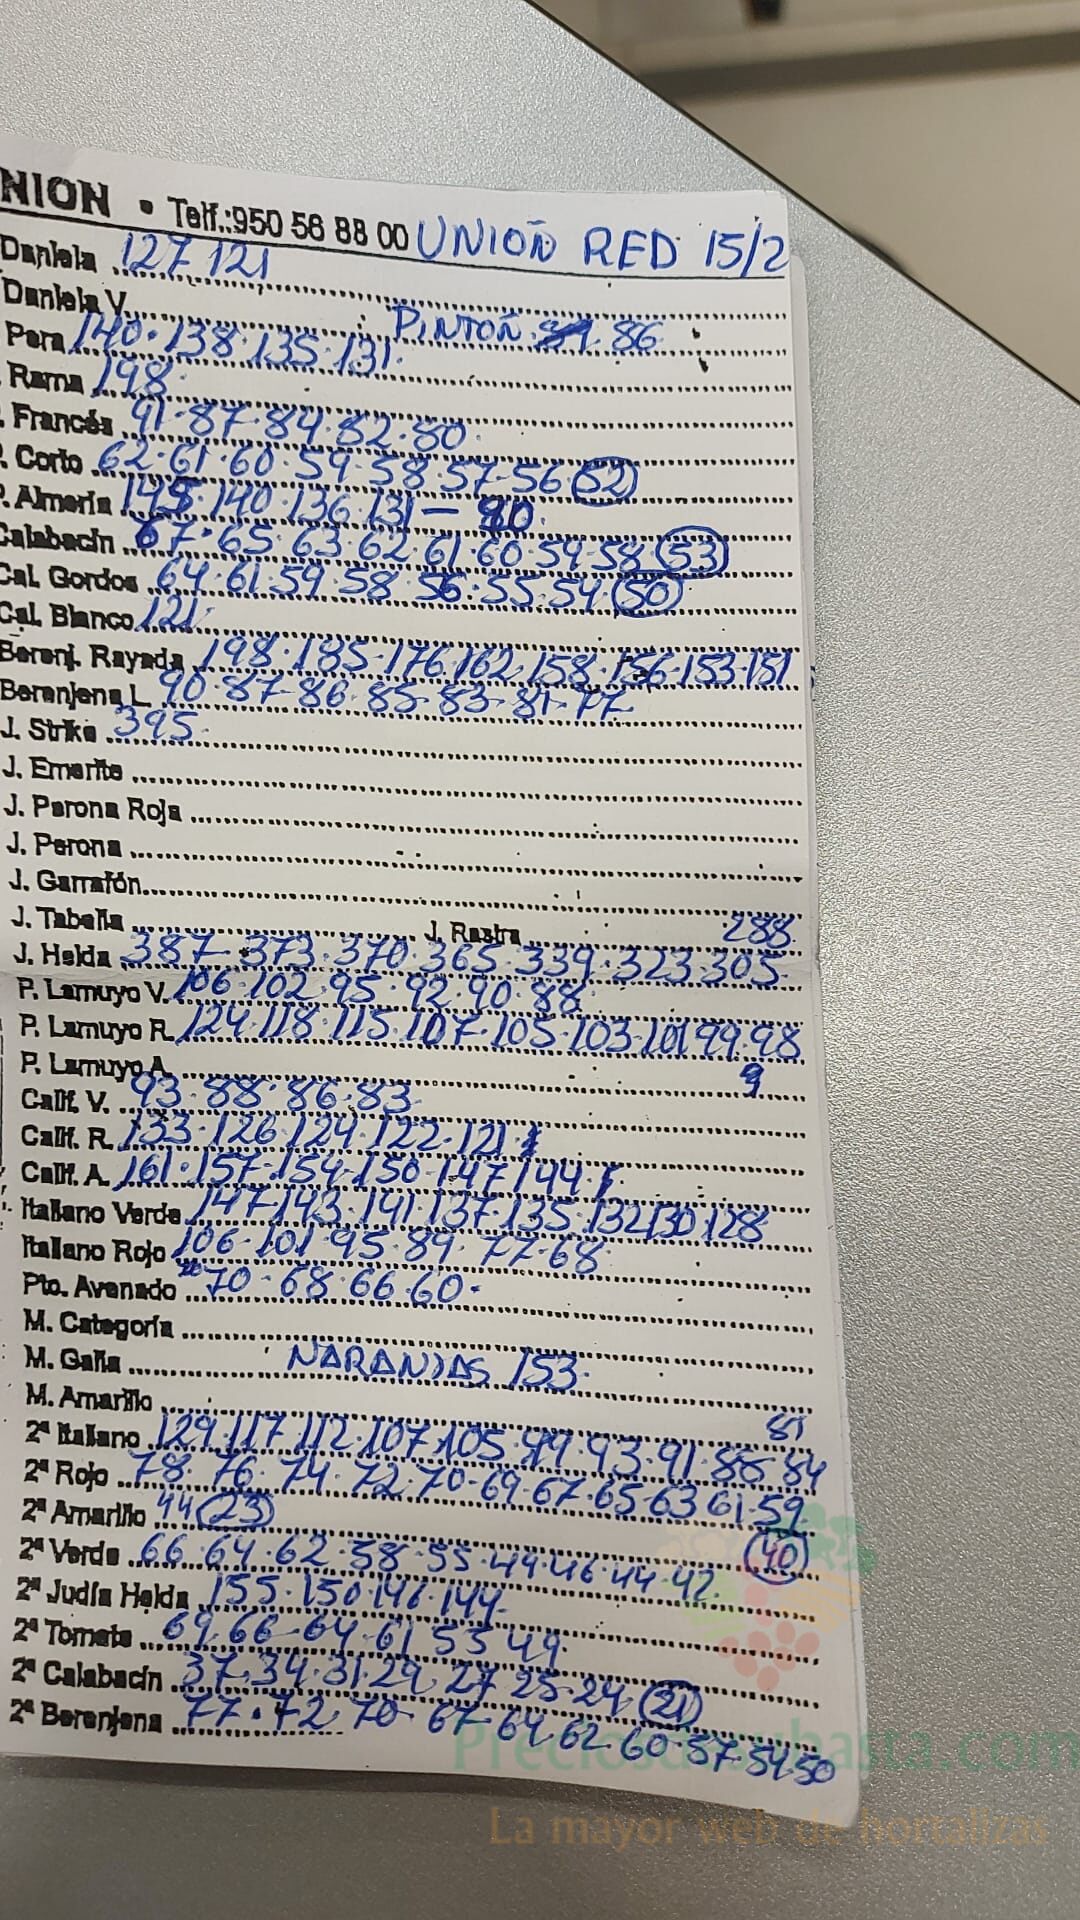 NION • Telf.:950 56 88 00 UNIOÑ RED 15/2
Daniela 127 121
Daniela V. PINTOÑ 86
Pera 140·138·135·131
Rama 198
. Francés 91·87·84·82·80
. Corto 62·61·60·59·58·57·56 (52)
P. Almería 145·140·136·131— 90
Calabacín 67·65·63·62·61·60·59·58·(53)
Cal. Gordos 64·61·59·58·56·55·54·(50)
Cal. Blanco 121
Berenj. Rayada 198·185·176·162·158·156·153·151
Berenjena L. 90·87·86·85·83·81·77
J. Strike 395
J. Emerite
J. Perona Roja
J. Perona
J. Garrafón
J. Tabella J. Rastra 288
J. Helda 387·373·370·365·339·323·305
P. Lamuyo V. 106·102·95·92·90·88
P. Lamuyo R. 124·118·115·107·105·103·101 99·98
P. Lamuyo A. 9
Calif. V. 93·88·86·83
Calif. R. 133·126·124·122·121
Calif. A. 161·157·154·150·147 144
Italiano Verde 147·143·141·137·135·132 130·128
Italiano Rojo 106·101·95·89·77·68
Pto. Avenado 70·68·66·60
M. Categoría
M. Galia NARANJAS 153
M. Amarillo 81
2ª Italiano 129·117·112·107·105·99·93·91·88·84
2ª Rojo 78·76·74·72·70·69·67·65·63 61·59
2ª Amarillo 44 (23)
2ª Verde 66·64·62·58·55·49·46·44·42 (40)
2ª Judía Helda 155·150·146·144
2ª Tomate 69·66·64·61 55 49
2ª Calabacín 37·34·31·29·27 25·24 (21)
2ª Berenjena 77·72·70·67·64 62 60·57·54·50
Preciosdesubasta.com
La mayor web de hortalizas